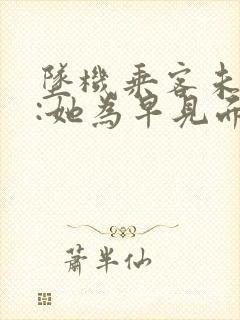 墜機乘客未
:她為早見而
蕭半仙